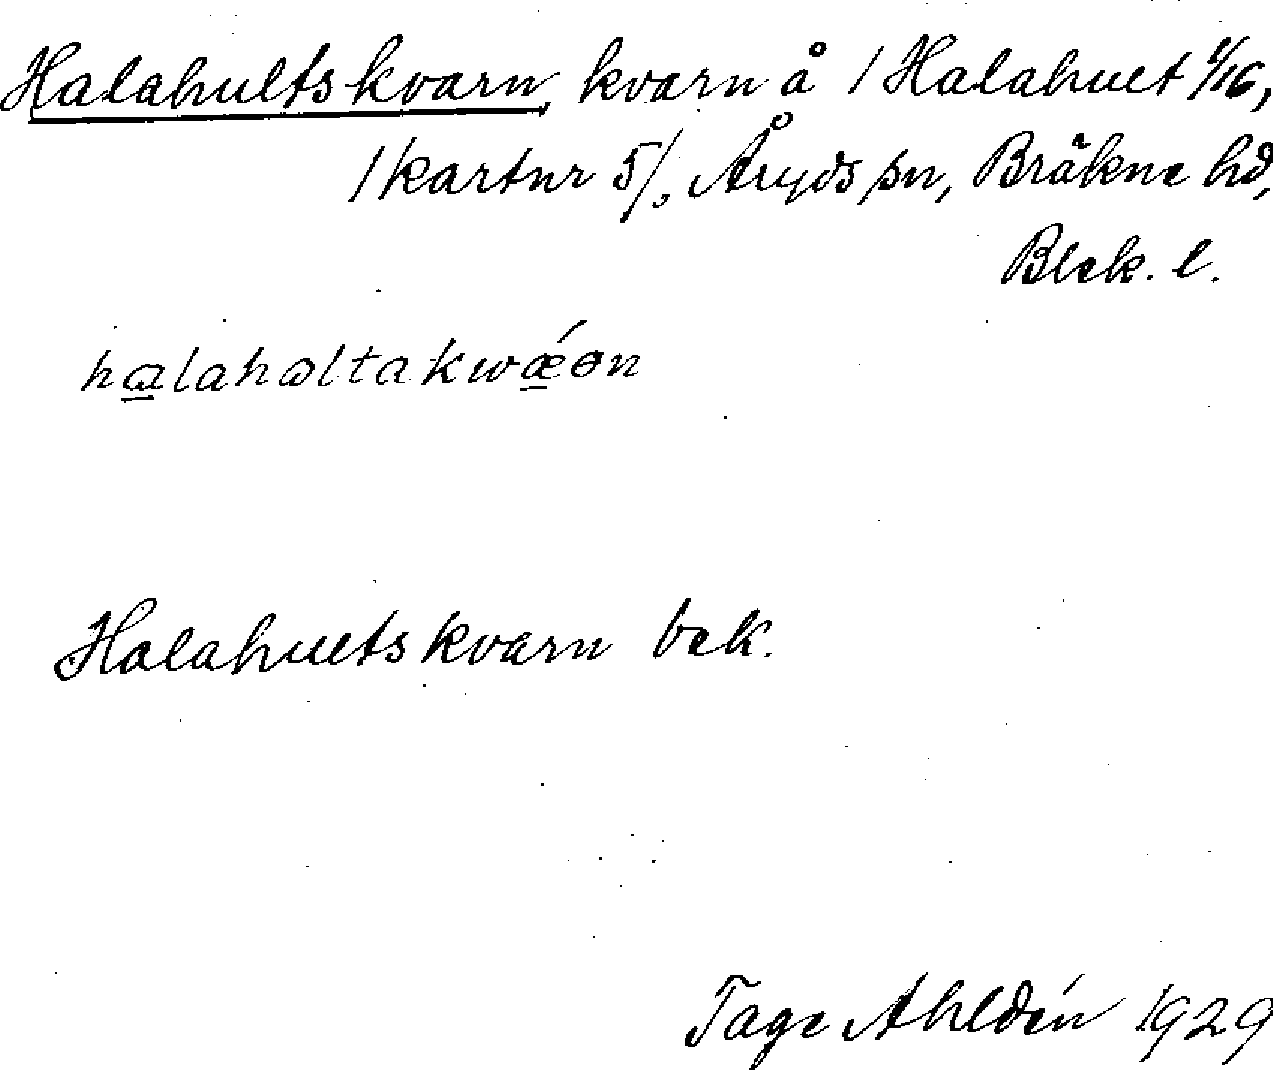 Halahultskvarn, kvarn å / Halahult 1/16,
/ kartnr 5/, Åryds sn, Bräkne hd,
Blek. l.
halahɷltakwǽɵn
Halahultskvarn bek.
Tage Ahldén 1929